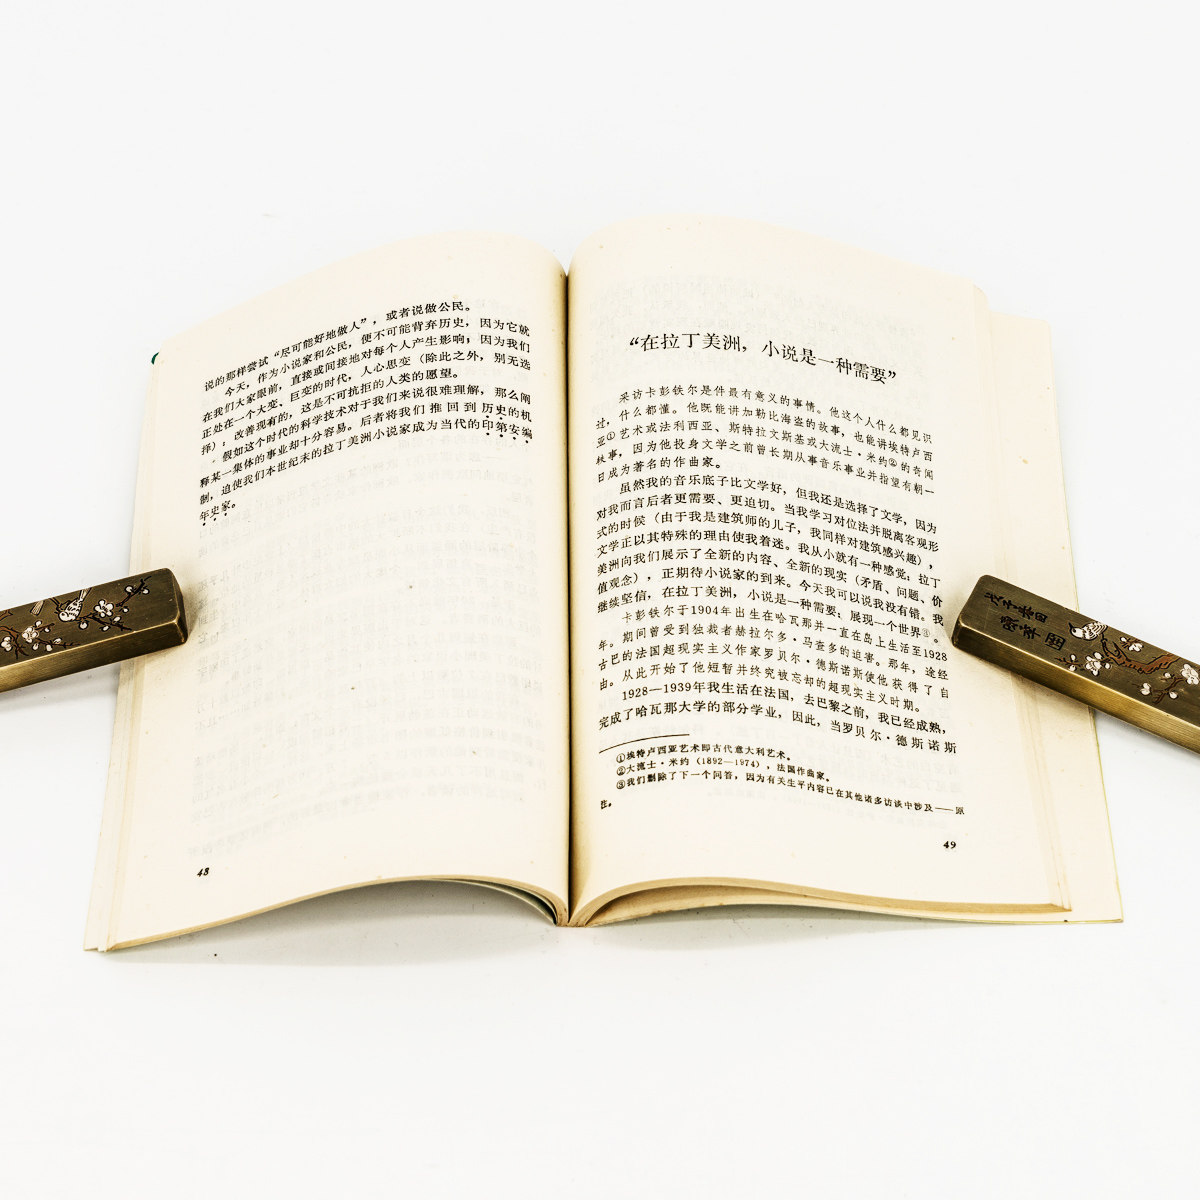 说的那样尝试“尽可能好地做人”，或者说做公民。
今天，作为小说家和公民，便不可能背弃历史，因为它就
在我们大家眼前，直接或间接地对每个人产生影响；因为我们
正处在一个大变、巨变的时代，人心思变（除此之外，别无选
择）；改善现有的，这是不可抗拒的人类的愿望。
假如这个时代的科学技术对于我们来说很难理解，那么阐
释某一集体的事业却十分容易。后者将我们推回到历史的机
制，迫使我们本世纪末的拉丁美洲小说家成为当代的印第安编
年史家。
48
“在拉丁美洲，小说是一种需要”
采访卡彭铁尔是件最有意义的事情。他这个人什么都见识
过，什么都懂。他既能讲加勒比海盗的故事，也能讲埃特卢西
亚①艺术或法利西亚、斯特拉文斯基或大流士·米约②的奇闻
秩事，因为他投身文学之前曾长期从事音乐事业并指望有朝一
日成为著名的作曲家。
虽然我的音乐底子比文学好，但我还是选择了文学，因为
对我而言后者更需要、更迫切。当我学习对位法并脱离客观形
式的时候（由于我是建筑师的儿子，我同样对建筑感兴趣），
文学正以其特殊的理由使我着迷。我从小就有一种感觉：拉丁
美洲向我们展示了全新的内容、全新的现实（矛盾、问题、价
值观念），正期待小说家的到来。今天我可以说我没有错。我
继续坚信，在拉丁美洲，小说是一种需要：展现一个世界③。
卡彭铁尔于1904年出生在哈瓦那并一直在岛上生活至1928
年。期间曾受到独裁者赫拉尔多·马查多的迫害。那年，途经
古巴的法国超现实主义作家罗贝尔·德斯诺斯使他获得了自
由。从此开始了他短暂并终究被忘却的超现实主义时期。
1928—1939年我生活在法国，去巴黎之前，我已经成熟，
完成了哈瓦那大学的部分学业，因此，当罗贝尔·德斯诺斯
①埃特卢西亚艺术即古代意大利艺术。
②大流士·米约（1892—1974），法国作曲家。
③我们删除了下一个问答，因为有关生平内容已在其他诸多访谈中涉及——原
注。
49
戊子春日